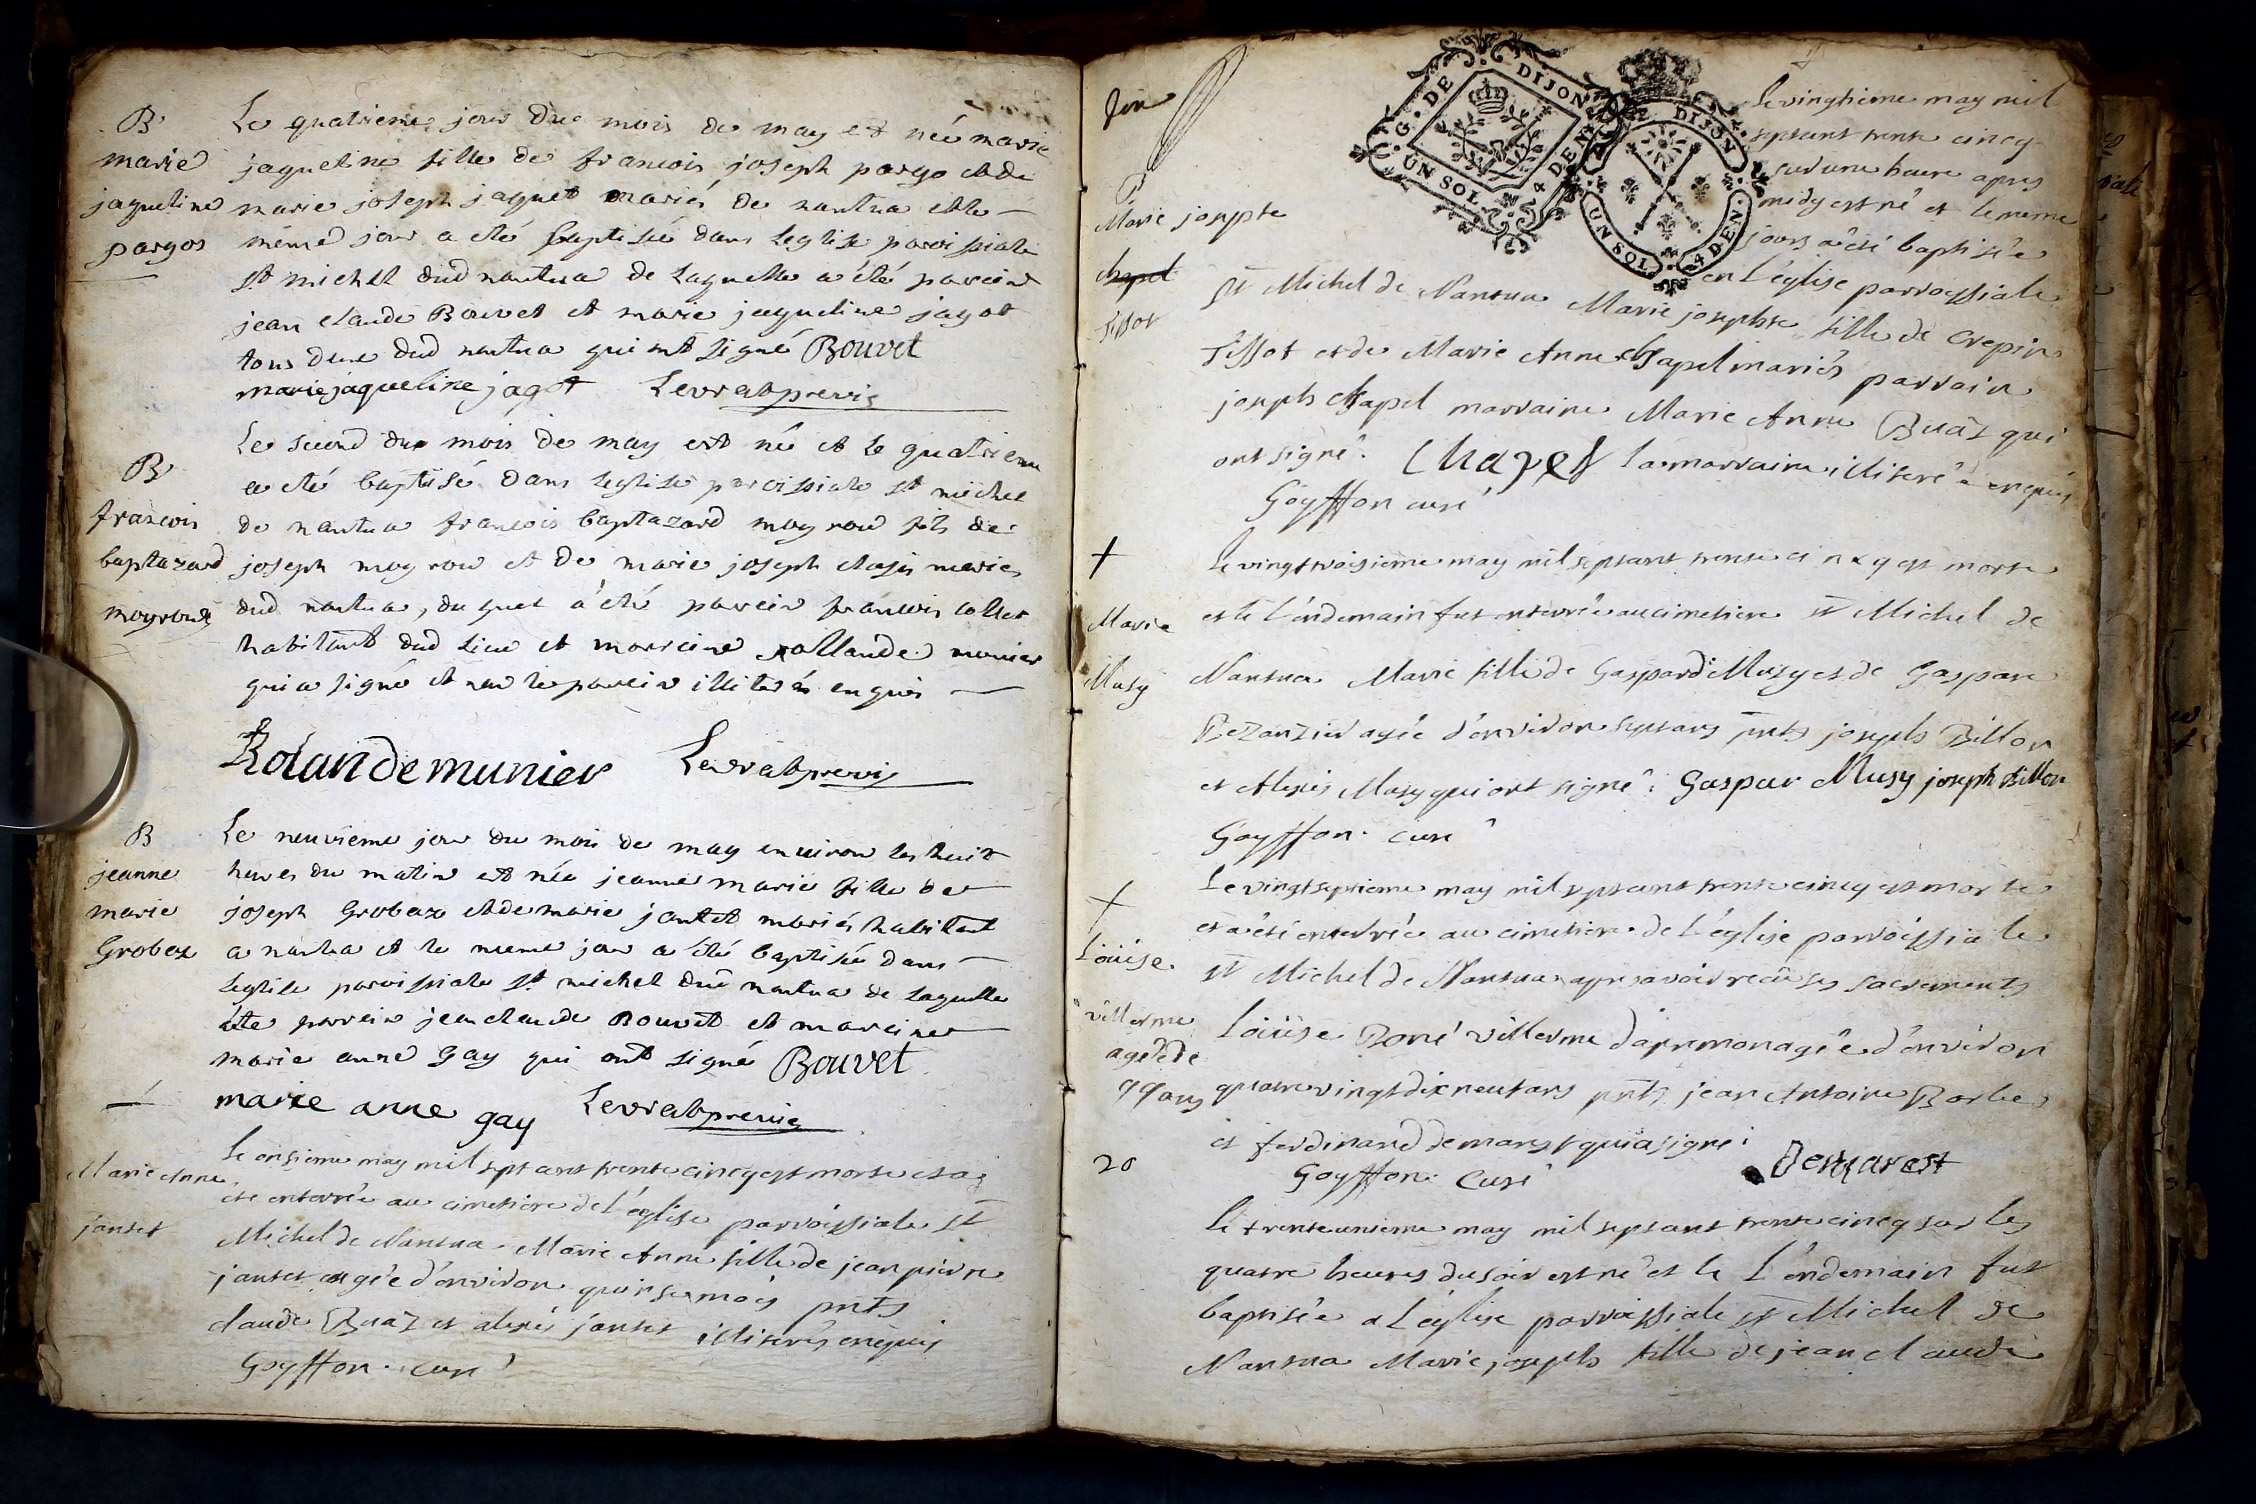 B
marie
jaqueline
pargos
Le quatrieme jour du mois de may est née marie
jaqueline fille de francois joseph pargo et de
marie joseph jaquet mariés de nantua et le
même jour a été baptisée dans leglise paroissiale
st michel dud nantua de laquelle a été parein
jean claude Bouvet et marie jaqueline jagot
tous deux dud nantua qui ont signé Bouvet
marie jaqueline jagot Levrat previs
B
francois
baptazard
moyroud
Le second du mois de may est né et le quatrieme
a été baptisé dans leglise paroissiale st michel
de nantua francois baptazard moyroud fils de
joseph moyroud et de marie joseph mariés
dud nantua, duquel a été parein francois collet
habitant dud lieu et marreine rollande munier
qui a signé et non le parein illiteré enquis
Rolande munier Levrat previs
B
jeanne
marie
Grobaz
Le neuvieme jour du mois de may environ les huit
heures du matin est née jeanne marie fille de
joseph Grobaz et de marie jantet mariés habitant
a nantua et le meme jour a été baptisée dans
leglise paroissiale st michel dud nantua de laquelle
été parrein jean claude Bouvet et mareine
marie anne Gay qui ont signé Bouvet
marie anne gay Levrat previs
Marie Anne
jantet
le onsieme may mil sept cent trente cincq est morte et a
été enterrée au cimetiere de L'église parroissiale st
Michel de Nantua Marie Anne fille de jean pierre
jantet agée d'environ quinse mois pnts
claude Buaz et alexis jantet illiterés enquis
Goyffon curé
Marie josephte
chapel
Tissot
G. DE DIJON
UN SOL 4 DEN
DIJON
UN SOL 4 DEN
le vingtieme may mil
septcent trente cincq
sur une heure apres
midy est né et le meme
jours a été baptisée
en L'église parroyssiale
st Michel de Nantua Marie josephte fille de Crepin
Tissot et de Marie Anne Chapel mariés parrain
joseph Chapel marraine Marie Anne Buaz qui
ont signé. Chapel La marraine illiteré enquis
Goyffon curé
+
Marie
Musy
le vingt troisieme may mil septcent trente cincq est morte
et le L'endemain fut enterrée au cimetiere st Michel de
Nantua Marie fille de Gaspard Musy et de Gaspare
agée d'environ sept ans pnts joseph Billon
et Alexis Musy qui ont signé. Gaspar Musy joseph Billon
Goyffon. Curé
+
Loüise
villerme
agée de
99 ans
Le vingt septieme may mil septcent trente cincq est morte
et a été enterrée au cimetiere de L'église parroissiale
st Michel de Nantua apres avoir recûe ses sacrements
Loüise Boné villerme d'apremon agée d'environ
quatre vingt dix neuf ans pnts jean Antoine Barbe
et ferdinand demarest qui a signé.
Goyffon. Curé Demarest
20
le trente unieme may mil septcent trente cincq sur les
quatre heures du soir est né et le L'endemain fut
baptisée a L'église parroissiale st Michel de
Nantua Marie joseph fille de jean claude